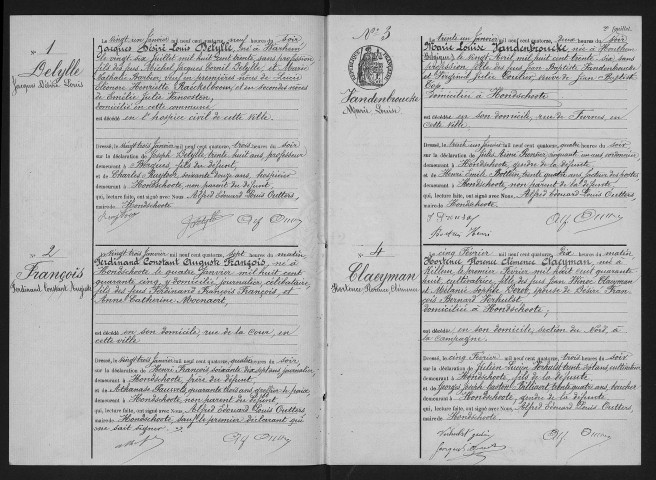 N° 1
Delylle
Jacques Désiré Louis
Le vingt un janvier mil neuf cent quatorze, neuf heures du soir
Jacques Désiré Louis Delylle, né à Warhem
le vingt six juillet mil huit cent trente, sans profession
fils des feus Michel Jacques Corneil Delylle, et Marie
Nathalie Barbier, veuf en premières noces de Lucie
Eléonore Henriette et en secondes noces
de Emélie Julie Vancosten,
domicilié en cette commune
est décédé en l'hospice civil de cette ville.
Dressé, le vingt trois janvier mil neuf cent quatorze, trois heures du soir
sur la déclaration de Joseph Delylle trente huit ans, professeur
demeurant à Bergues, fils du défunt,
et de Charles Ruyloor, soixante douze ans, hospicier
demeurant à Hondschoote, non parent du défunt
qui, lecture faite, ont signé avec Nous, Alfred Edouard Louis Outters,
maire de Hondschoote
2
François
Ferdinand Constant Auguste
Le vingt trois janvier mil neuf cent quatorze, sept heures du matin
Ferdinand Constant Auguste François, né à
Hondschoote le quatre janvier mil huit cent
quarante cinq, y domicilié journalier, célibataire,
fils des feus Ferdinand François François, et
Anne Catherine Moenaert,
est décédé en son domicile, rue de la Cour, en
cette ville
Dressé, le vingt trois janvier mil neuf cent quatorze, quatre heures du soir
sur la déclaration de Henri François soixante dix sept ans journalier,
demeurant à Hondschoote, frère du défunt
et de Athanase quarante trois ans greffier de paix
demeurant à Hondschoote, non parent du défunt,
qui, lecture faite, ont signé avec Nous, Alfred Edouard Louis Outters,
maire de Hondschoote, sauf le premier déclarant qui
ne sait signer
2e feuillet
N° 3
Vandenbroucke
Marie Louise
Le trente un janvier mil neuf cent quatorze, deux heures du soir
Marie Louise Vandenbroucke née à Houthem
Belgique, le vingt Avril mil huit cent trente six, sans
profession, fille des feus Jean Baptiste Vandenbroucke,
et Perpétue Julie veuve de Jean Baptiste
Top,
domiciliée à Hondschoote
est décédée en son domicile, rue de Furnes en
cette ville.
Dressé, le trente un janvier mil neuf cent quatorze, quatre heures du soir
sur la déclaration de Jules cinquante un ans cordonnier
demeurant à Hondschoote, gendre de la défunte
et de Henri Emile Bottein, trente quatre ans, facteur des postes
demeurant à Hondschoote, non parent de la défunte,
qui, lecture faite, ont signé avec Nous, Alfred Edouard Louis Outters,
maire de Hondschoote.
4
Claeyman
Hortense Florence Clémence
Le cinq Février mil neuf cent quatorze, dix heures du matin
Hortense Florence Clémence Claeyman, née à
Killem le premier Février mil huit cent quarante
huit, cultivatrice, fille des feus Jean Winoc Claeyman
et Mélanie Sophie épouse de Désiré François
Bernard Verhulst
domiciliée à Hondschoote,
est décédée en son domicile, section du Nord, à
la Campagne.
Dressé, le cinq Février mil neuf cent quatorze, trois heures du soir
sur la déclaration de Julien Lucien Verhulst trente sept ans cultivateur
demeurant à Hondschoote, fils de la défunte
et de Georges Joseph Gaston trente quatre ans, boucher
demeurant à Hondschoote, gendre de la défunte
qui, lecture faite, ont signé avec Nous, Alfred Edouard Louis Outters,
maire de Hondschoote